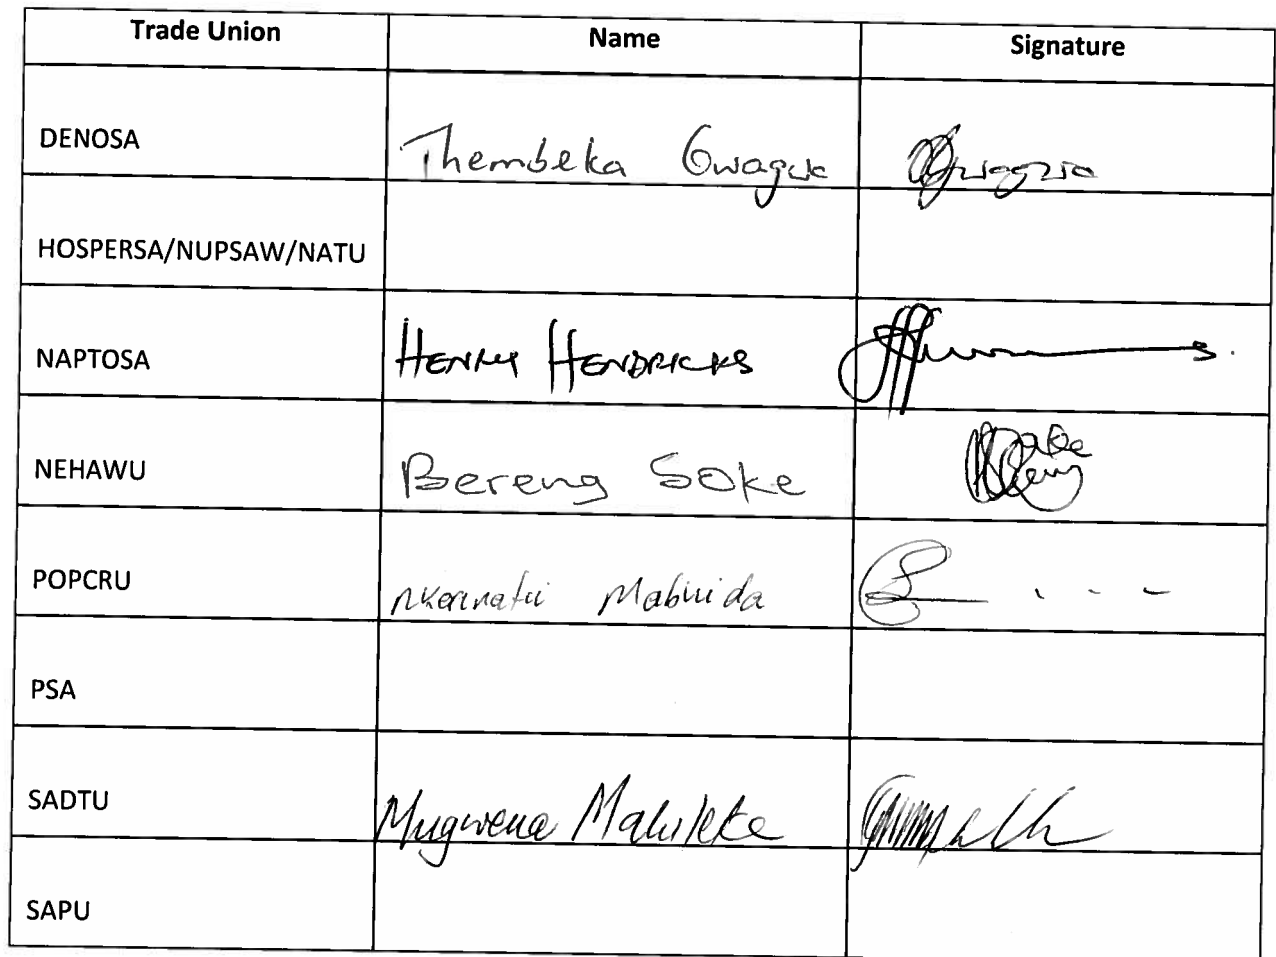 Trade Union Name Signature
DENOSA Thembeka Gwagwa Gwagwa
HOSPERSA/NUPSAW/NATU
NAPTOSA HENRY HENDRICKS
NEHAWU Bereng Soke
POPCRU Mabhida
PSA
SADTU Mugwena Maluleke
SAPU